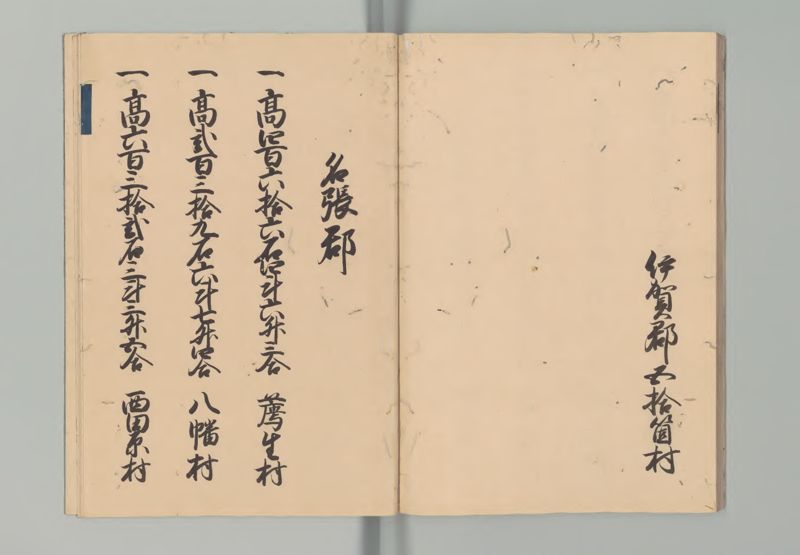 伊賀郡五拾箇村
名張郡
一高四百六拾六石四斗六升三合 薦生村
一高弐百三拾九石六斗七升四合 八幡村
一高六百三拾弐石三斗二升六合 西田原村